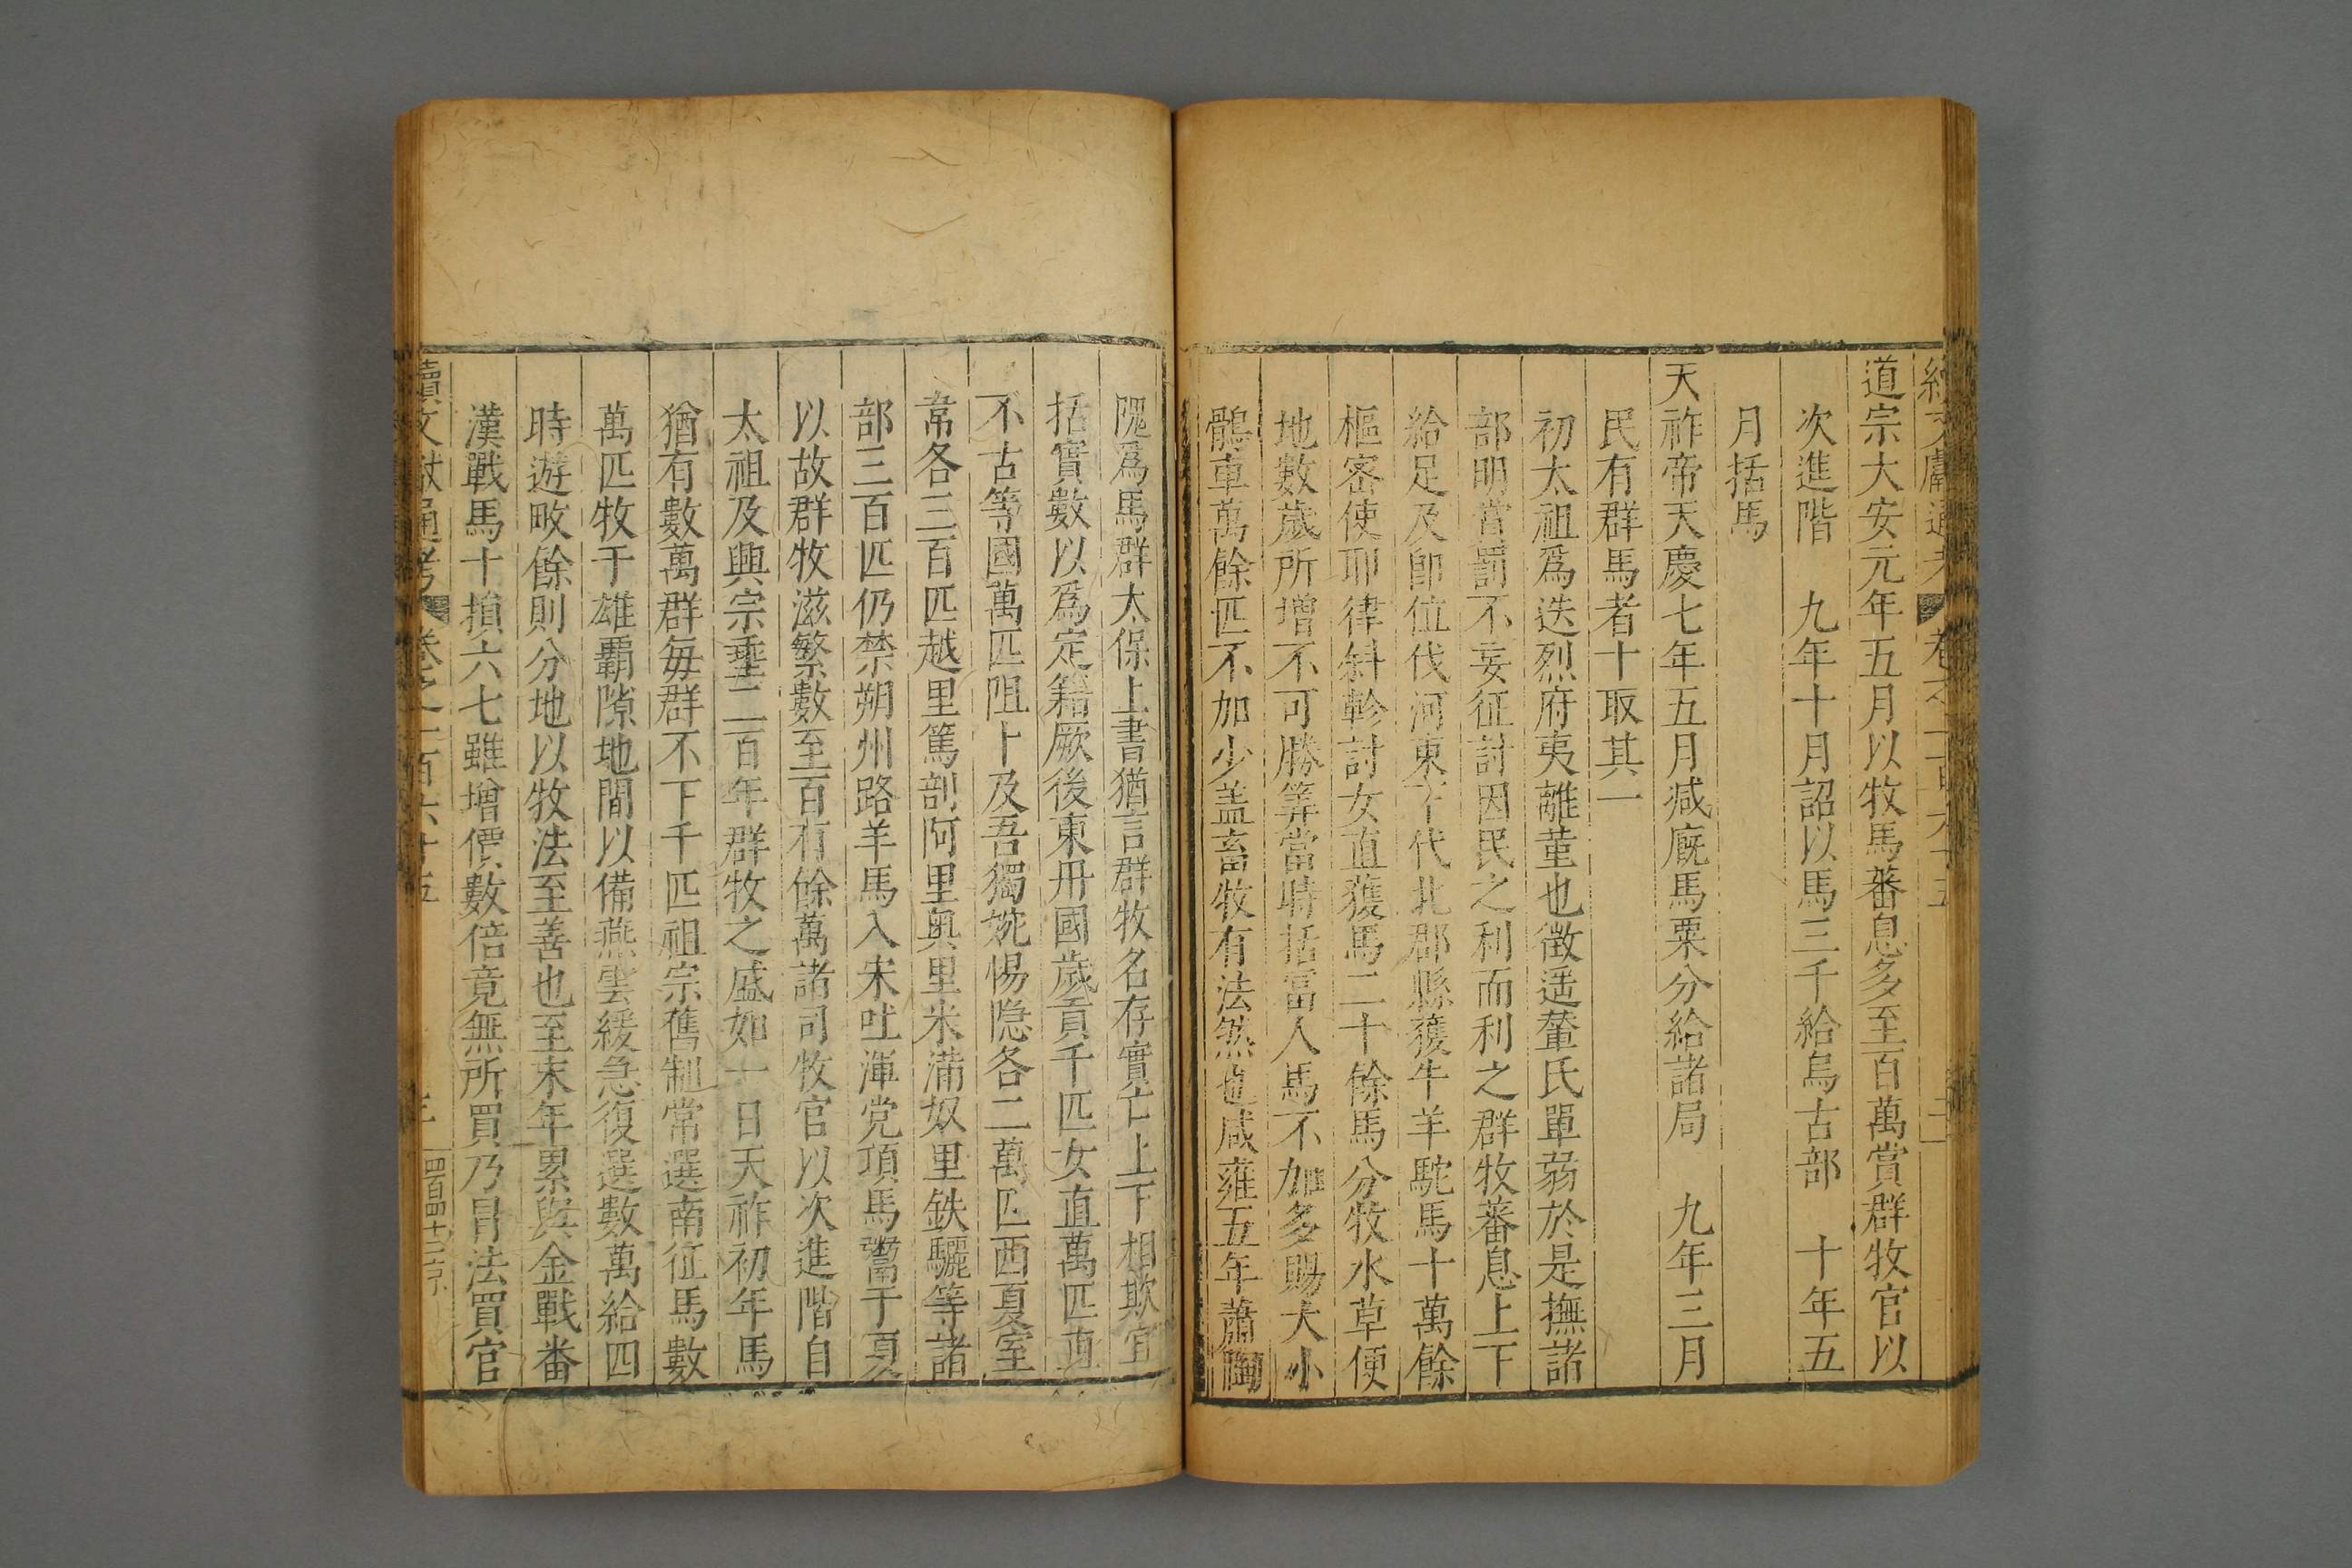 續文獻通考 卷之一百六十五 二
道宗大安元年五月以牧馬蕃息多至百萬賞群牧官以
次進階 九年十月詔以馬三千給烏古部 十年五
月括馬
天祚帝天慶七年五月減廐馬粟分給諸局 九年三月
民有群馬者十取其一
初太祖爲迭烈府夷離菫也徵遥輦氏單弱於是撫諸
部明賞罰不妄征討因民之利而利之群牧蕃息上下
給足及卽位伐河東下代北郡縣獲牛羊駝馬十萬餘
樞密使耶律斜軫討女直獲馬二十餘馬分牧水草便
地數歲所增不可勝筭當時括富人馬不加多賜大小
鶻軍萬餘匹不加少盖畜牧有法然也咸雍五年蕭陶
隗爲馬群太保上書猶言群牧名存實亡上下相欺宜
括實數以爲定籍厥後東丹國歲貢千匹女直萬匹直
不古等國萬匹阻卜及吾獨婉惕隱各二萬匹西夏室
韋各三百匹越里篤剖阿里奥里米蒲奴里鉄驪等諸
部三百匹仍禁朔州路羊馬入宋吐渾党項馬鬻于夏
以故群牧滋繁數至百有餘萬諸司牧官以次進階自
太祖及興宗垂二百年群牧之盛如一日天祚初年馬
猶有數萬群每群不下千匹祖宗舊制常選南征馬數
萬匹牧于雄覇隙地間以備燕雲緩急復選數萬給四
時遊畋餘則分地以牧法至善也至末年累與金戰番
漢戰馬十損六七雖增價數倍竟無所買乃冐法買官
續文獻通考 卷之一百六十五 三 四百四十二